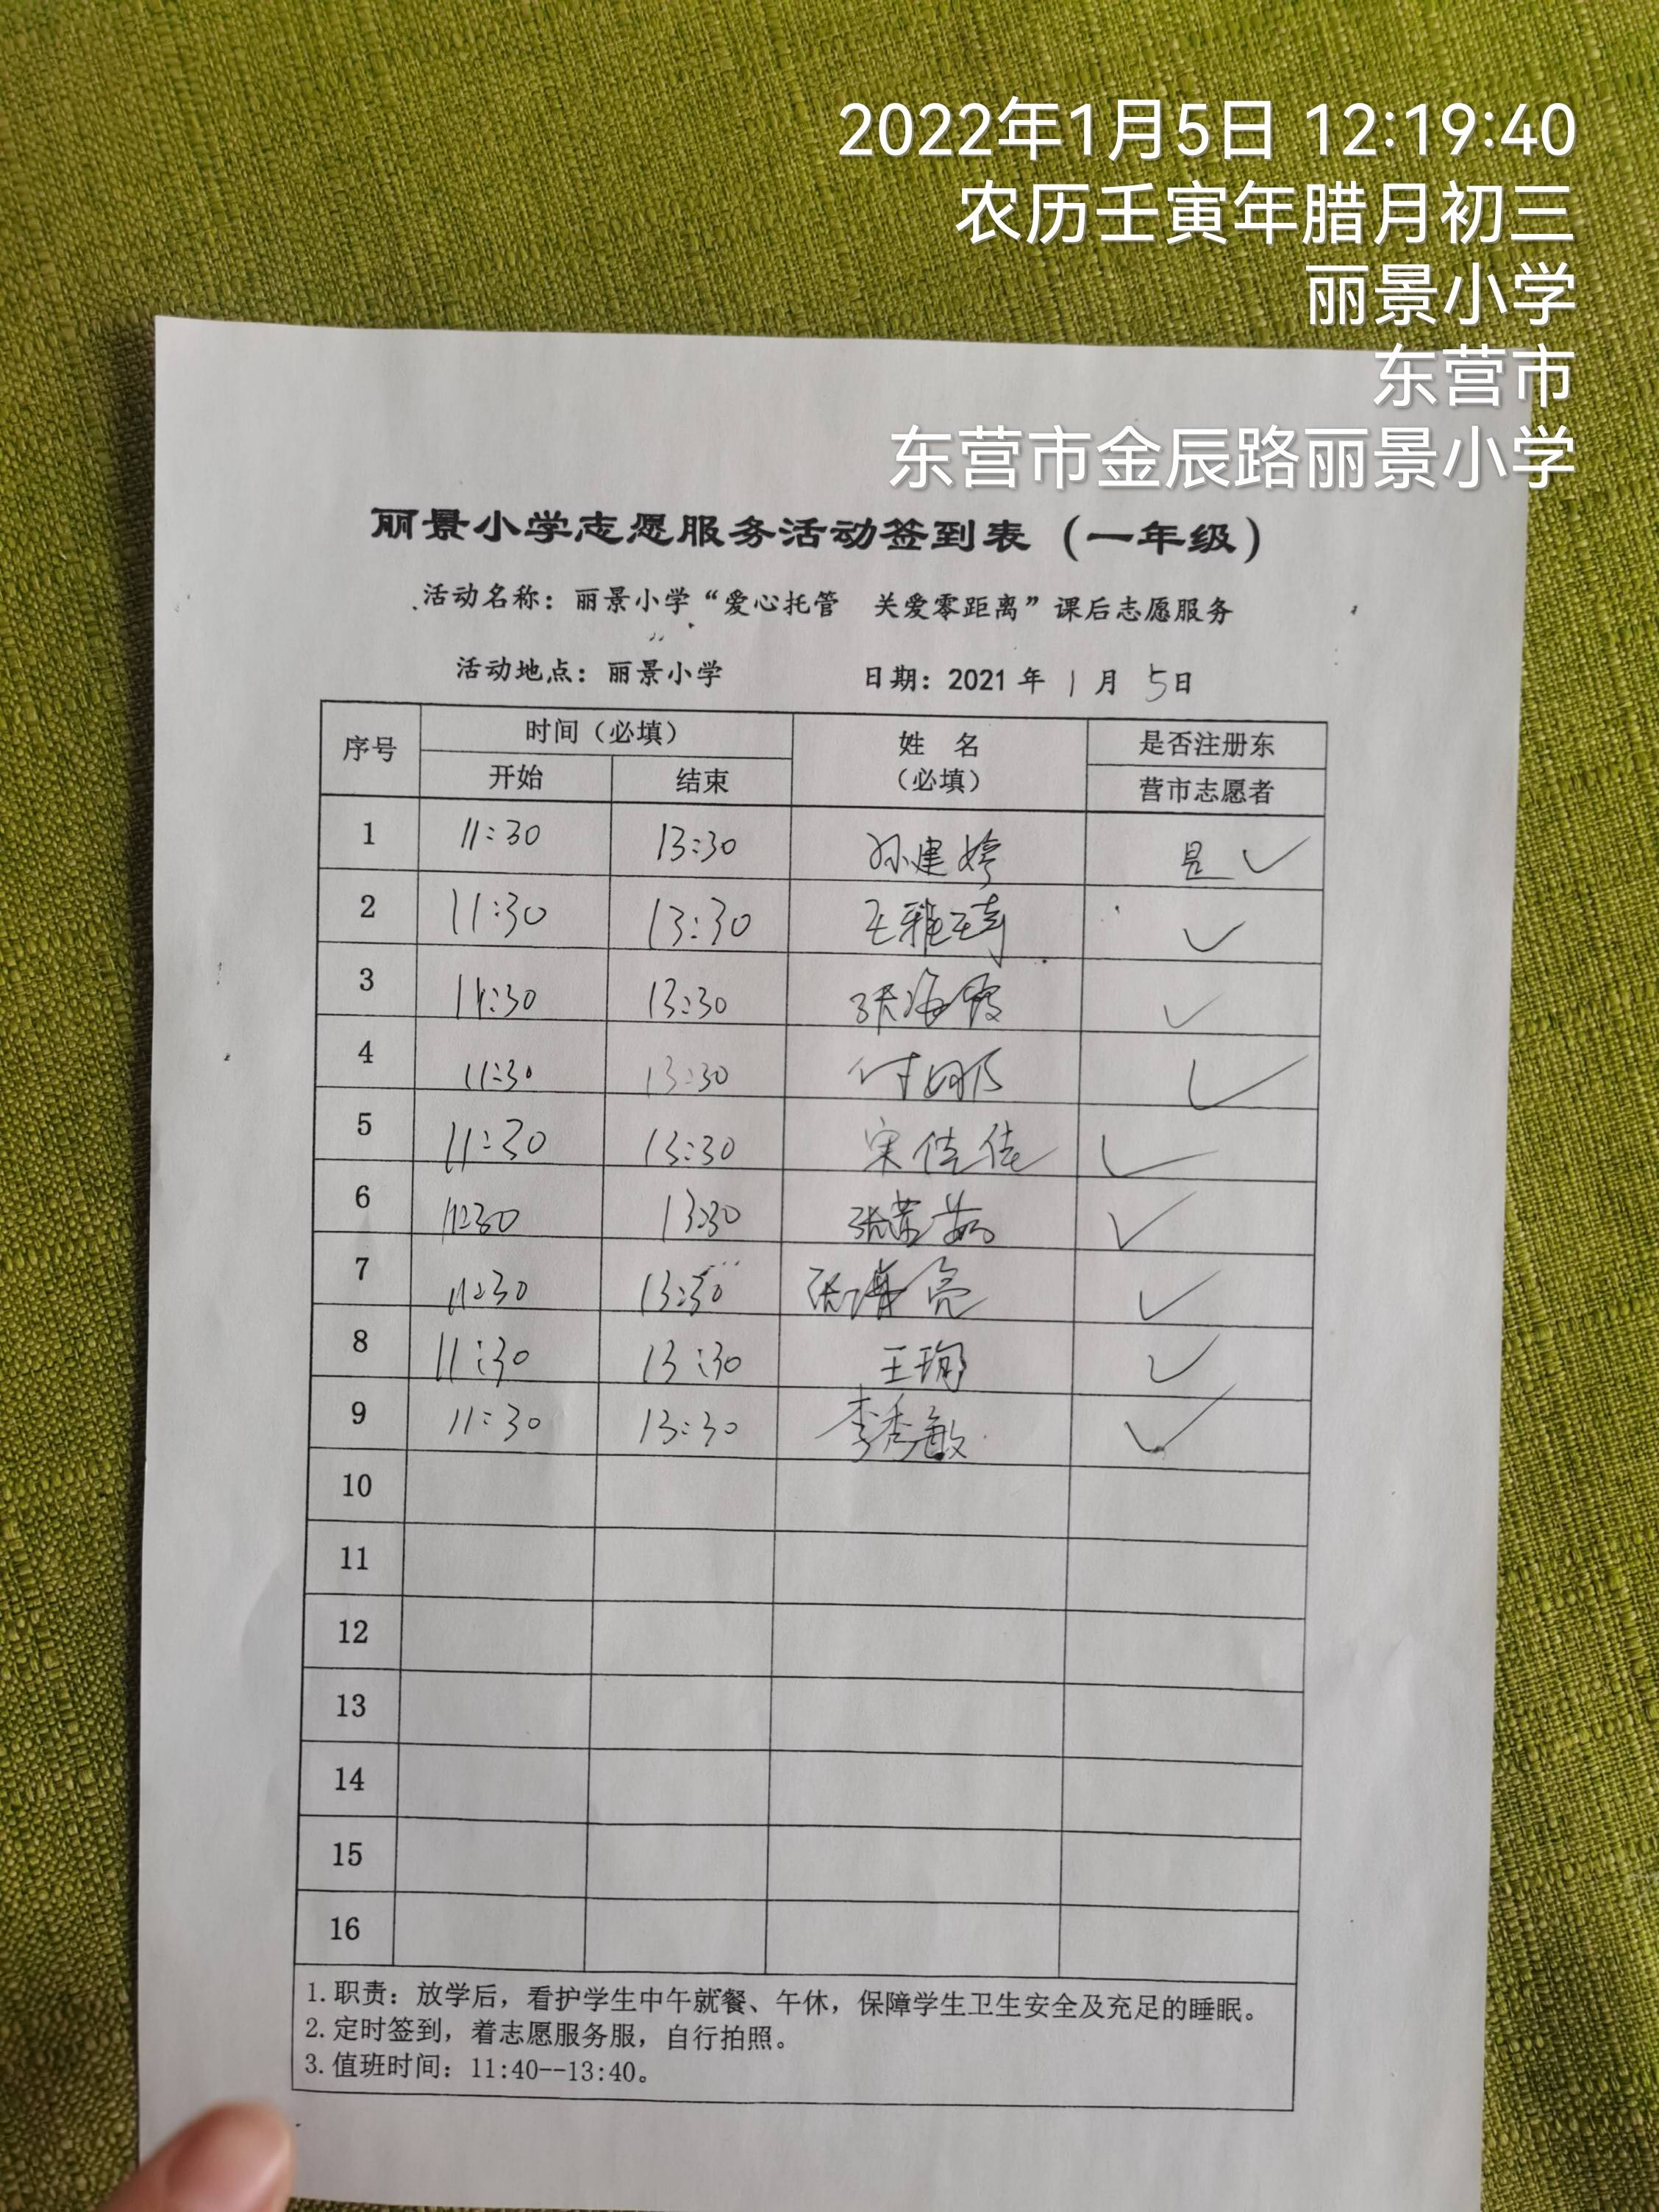 2022年1月5日 12:19:40
农历壬寅年腊月初三
丽景小学
东营市
东营市金辰路丽景小学
丽景小学志愿服务活动签到表（一年级）
活动名称：丽景小学“爱心托管 关爱零距离”课后志愿服务
活动地点：丽景小学 日期：2021 年 1 月 5日
序号 时间（必填） 姓 名（必填） 是否注册东营市志愿者
开始 结束
1 11:30 13:30 孙建婷 是 ✓
2 11:30 13:30 王雅琦 ✓
3 11:30 13:30 张海霞 ✓
4 11:30 13:30 付 ✓
5 11:30 13:30 宋佳佳 ✓
6 11:30 13:30 张 ✓
7 11:30 13:30 张 亮 ✓
8 11:30 13:30 王珣 ✓
9 11:30 13:30 李秀敏 ✓
10
11
12
13
14
15
16
1.职责：放学后，看护学生中午就餐、午休，保障学生卫生安全及充足的睡眠。
2.定时签到，着志愿服务服，自行拍照。
3.值班时间：11:40--13:40。